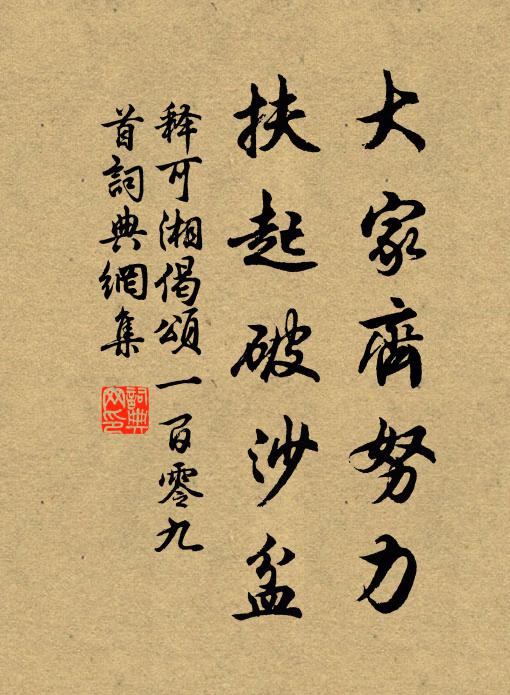 大家齊努力
扶起破沙盆
释可湘偈頌一百零九
首詞典網集
詞典網印